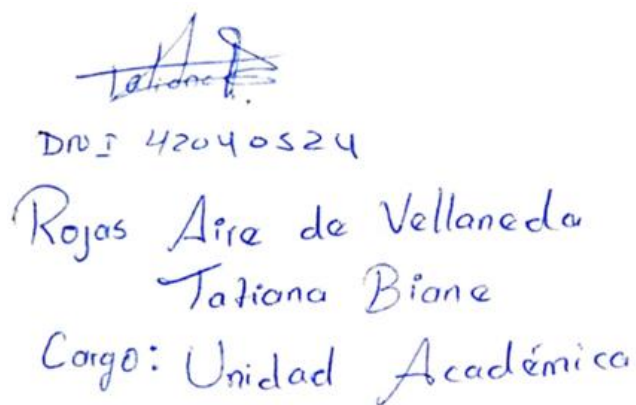 Tatiana
DNI 42040524
Rojas Aire de Vellaneda
Tatiana Biane
Cargo: Unidad Académica